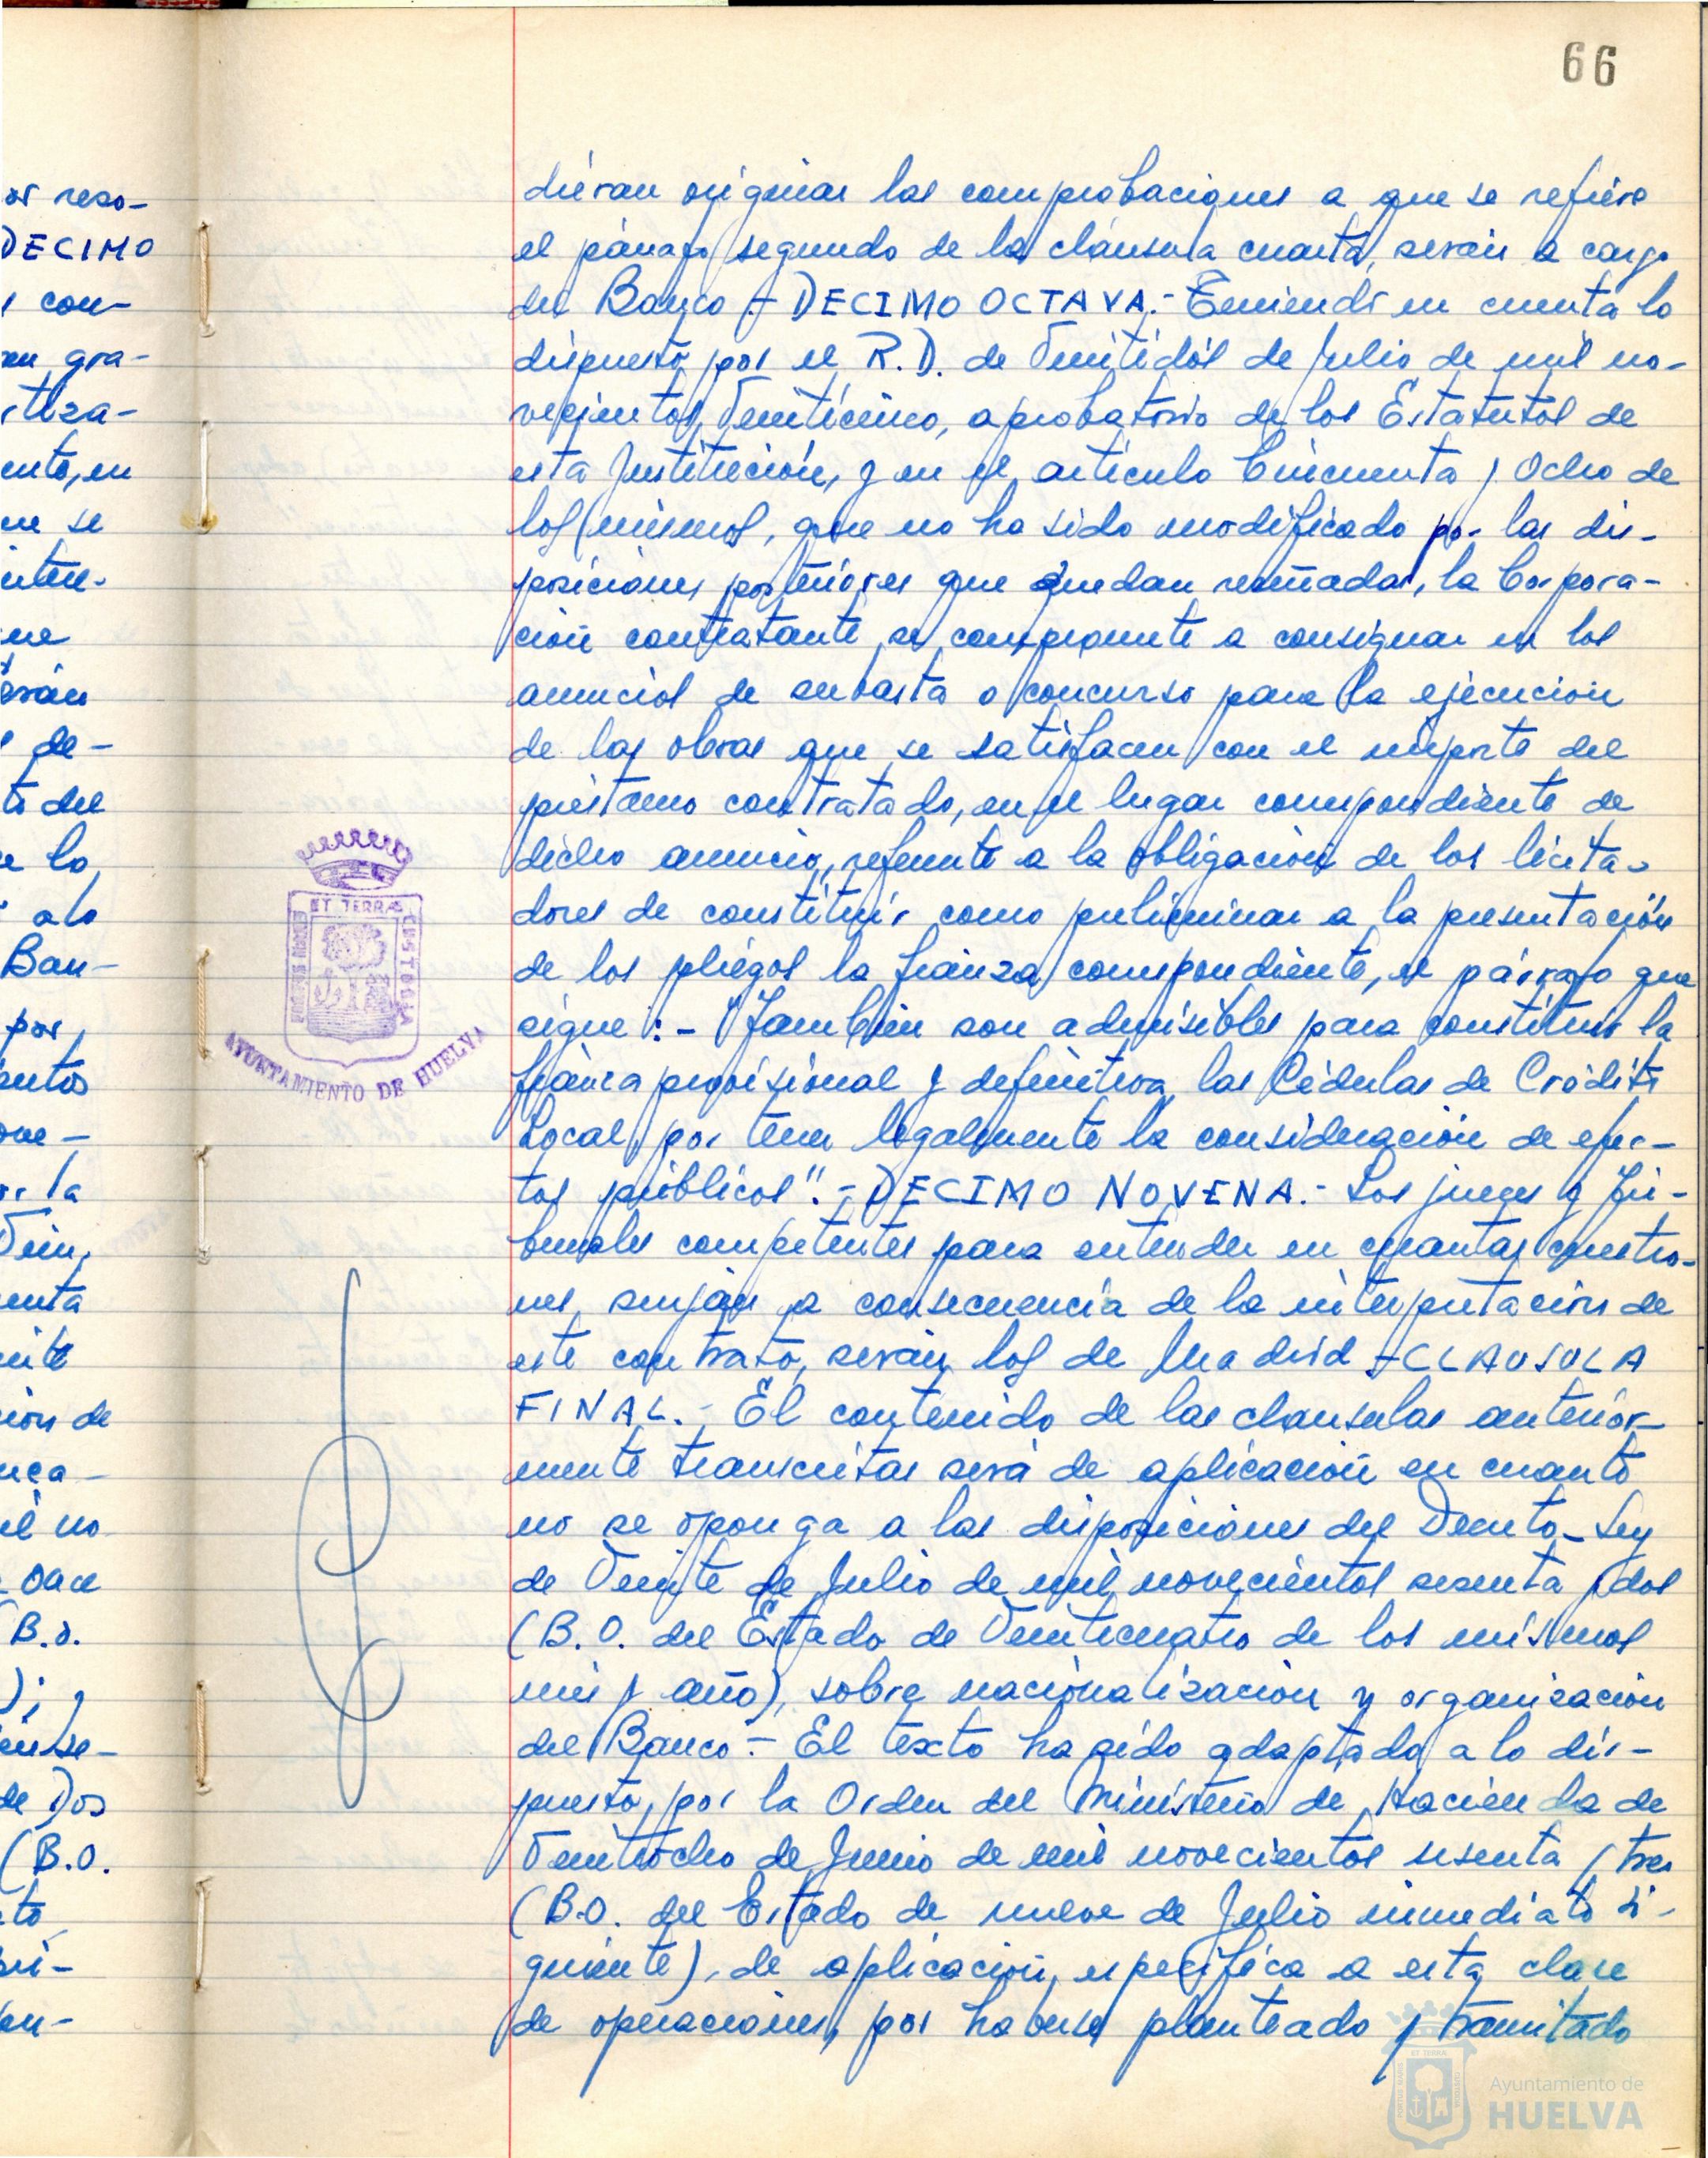 66
or reso-
DECIMO
con-
en gra-
tiza-
ento, en
ue se
de-
to del
lo
Ban-
por
la
enta
ion de
il no
(B.O.
de Dos
(B.O.
dieran originar las comprobaciones a que se refiere
el párrafo segundo de la cláusula cuarta, serán a cargo
del Banco.- DECIMO OCTAVA.- Teniendo en cuenta lo
dispuesto por el R.D. de Veintidós de Julio de mil no-
vecientos Veinticinco, aprobatorio de los Estatutos de
esta Institución, y en el artículo Cincuenta y Ocho de
los mismos, que no ha sido modificado por las dis-
posiciones posteriores que quedan reseñadas, la Corpora-
ción contratante se compromete a consignar en los
anuncios de subasta o concurso para la ejecución
de las obras que se satisfacen con el importe del
préstamo contratado, en el lugar correspondiente de
dicho anuncio, referente a la obligación de los licita-
dores de constituir como preliminar a la presentación
de los pliegos la fianza correspondiente, el párrafo que
sigue:- "También son admisibles para constituir la
fianza provisional y definitiva las Cédulas de Crédito
Local, por tener legalmente la consideración de efec-
tos públicos".- DECIMO NOVENA.- Los jueces y Tri-
bunales competentes para entender en cuantas cuestio-
nes surjan a consecuencia de la interpretación de
este contrato, serán los de Madrid.-CLAUSULA
FINAL.- El contenido de las clausulas anterior-
mente transcritas será de aplicación en cuanto
no se oponga a las disposiciones del Decreto-Ley
de Veinte de Julio de mil novecientos sesenta y dos
(B.O. del Estado de Veinticuatro de los mismos
mes y año), sobre nacionalización y organización
del Banco.- El texto ha sido adaptado a lo dis-
puesto por la Orden del Ministerio de Hacienda de
Veintiocho de Junio de mil novecientos sesenta y tres
(B.O. del Estado de nueve de Julio inmediato si-
guiente), de aplicación específica a esta clase
de operaciones, por haberse planteado y tramitado
ET TERRAE
CUSTODIA
AYUNTAMIENTO DE HUELVA
Ayuntamiento de
HUELVA